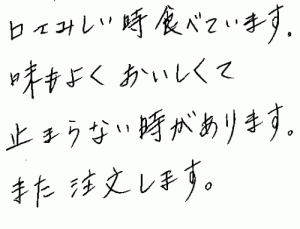 口さみしい時食べています。
味もよくおいしくて
止まらない時があります。
また注文します。